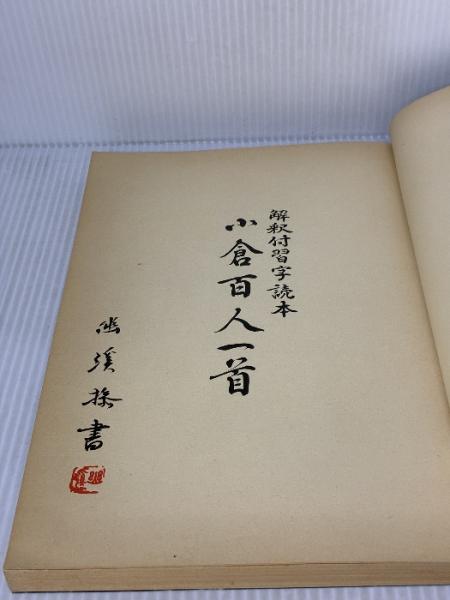 解釈付習字読本
小倉百人一首
幽溪操書